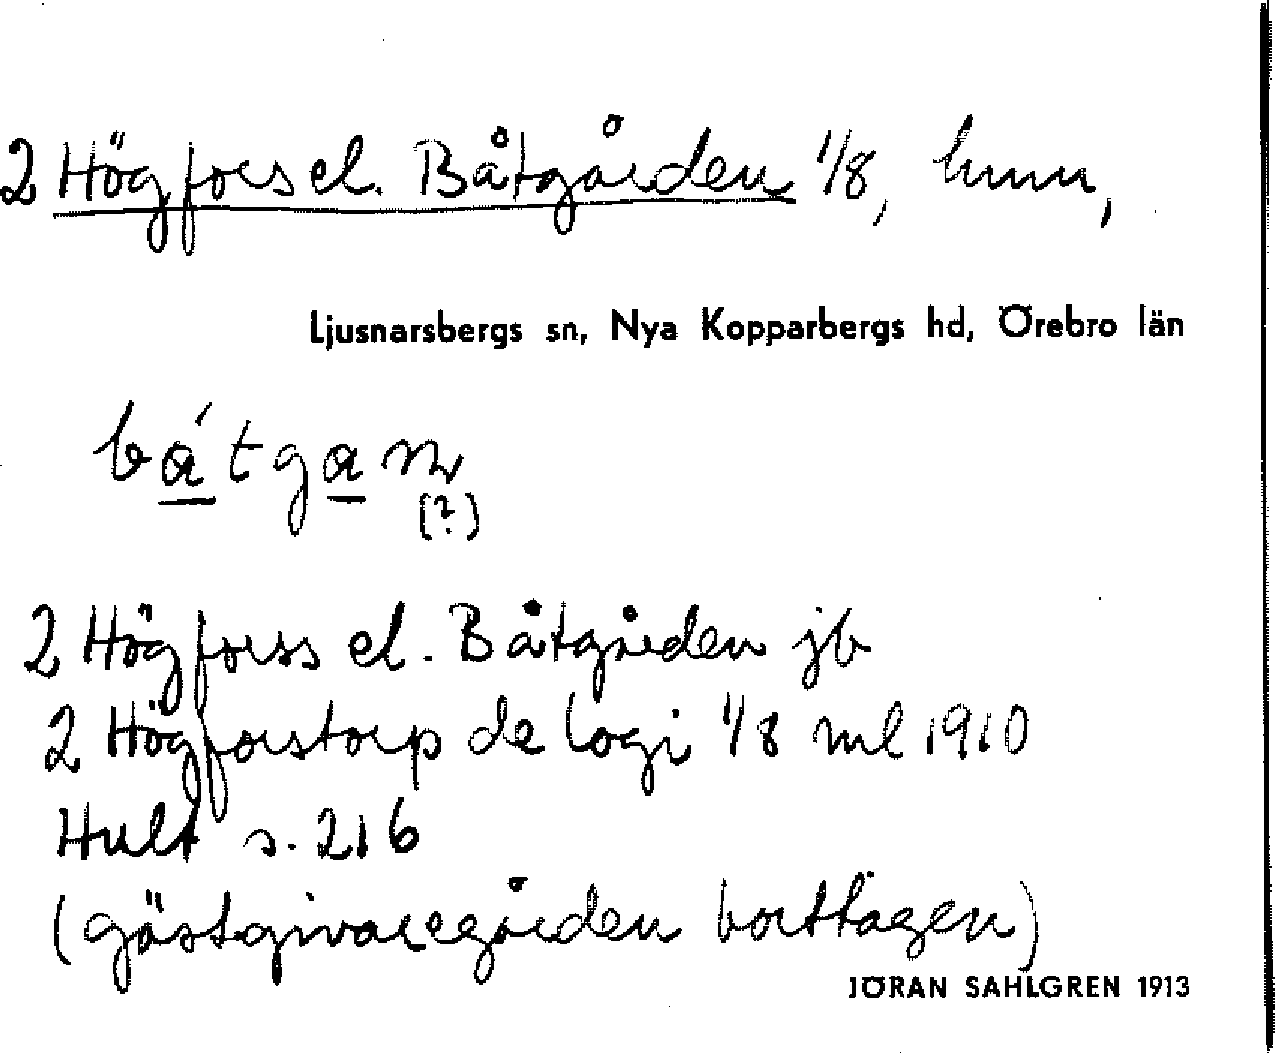 2 Högfors el. Båtgården 1/8, hmn,
Ljusnarsbergs sn, Nya Kopparbergs hd, Örebro län
bátgaṇ
(?)
2 Högforss el. Båtgården jb
2 Högforstorp de logi 1/8 ml 1910
Hult s. 216
(gästgivaregården borttagen)
JÖRAN SAHLGREN 1913